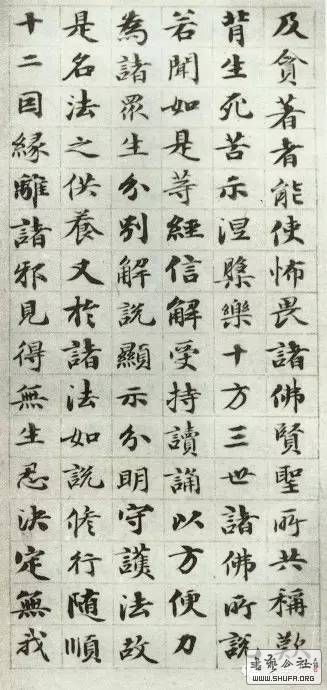 及貪著者能使怖畏諸佛賢聖所共稱歎
背生死苦示涅槃樂十方三世諸佛所說
若聞如是等經信解受持讀誦以方便力
為諸眾生分別解說顯示分明守護法故
是名法之供養又於諸法如說修行随順
十二因緣離諸邪見得無生忍決定無我
WWW.SHUFA.ORG